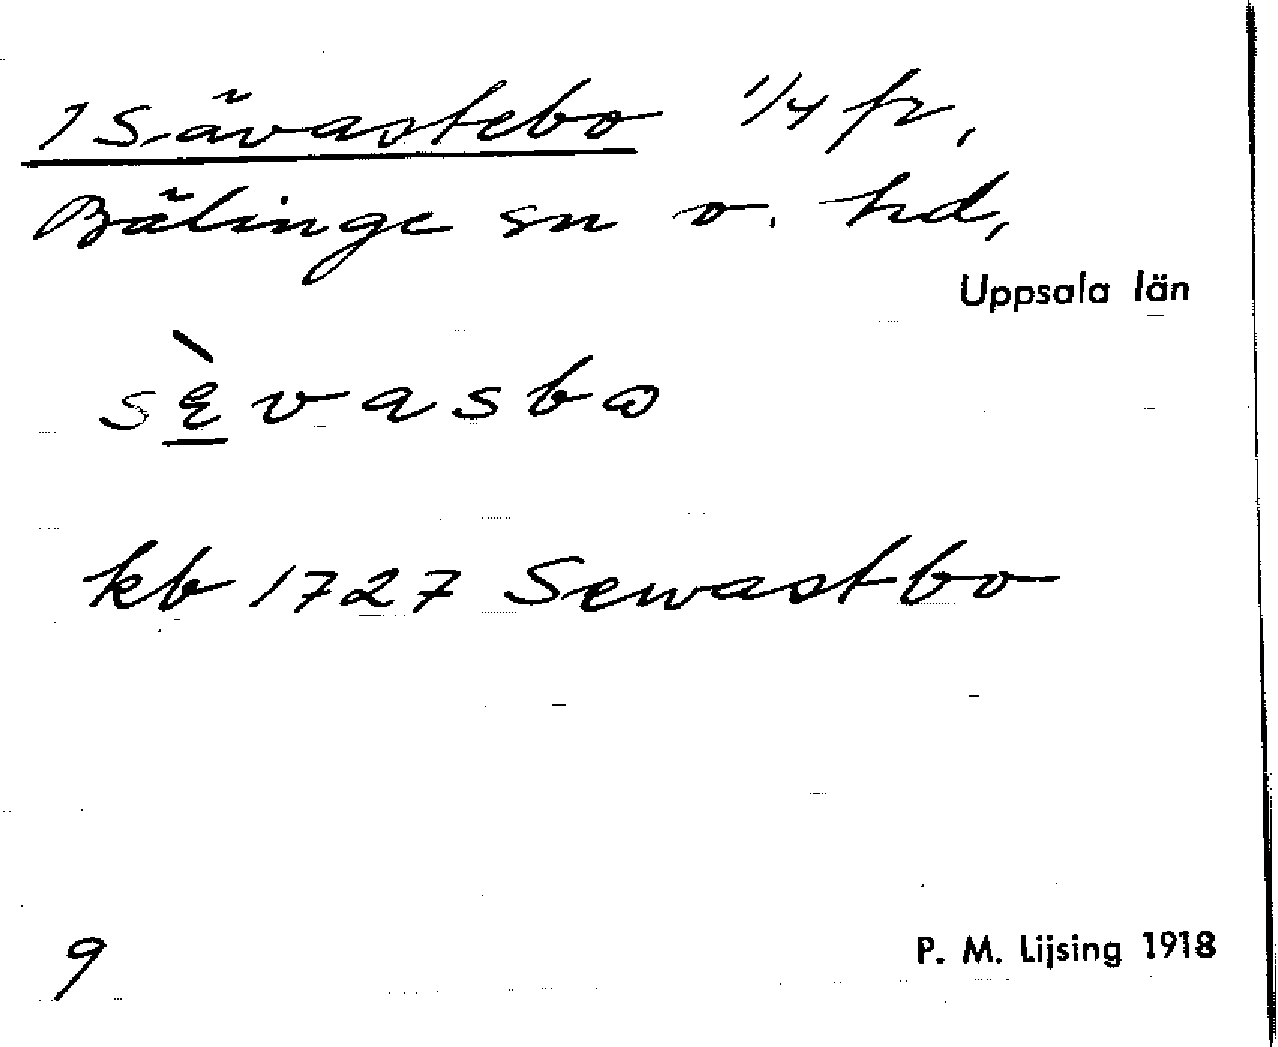 1 Sävastebo 1/4 fr,
Bälinge sn o. hd,
Uppsala län
sɛ̠̀vasbω
kb 1727 Sewastbo
9
P. M. Lijsing 1918